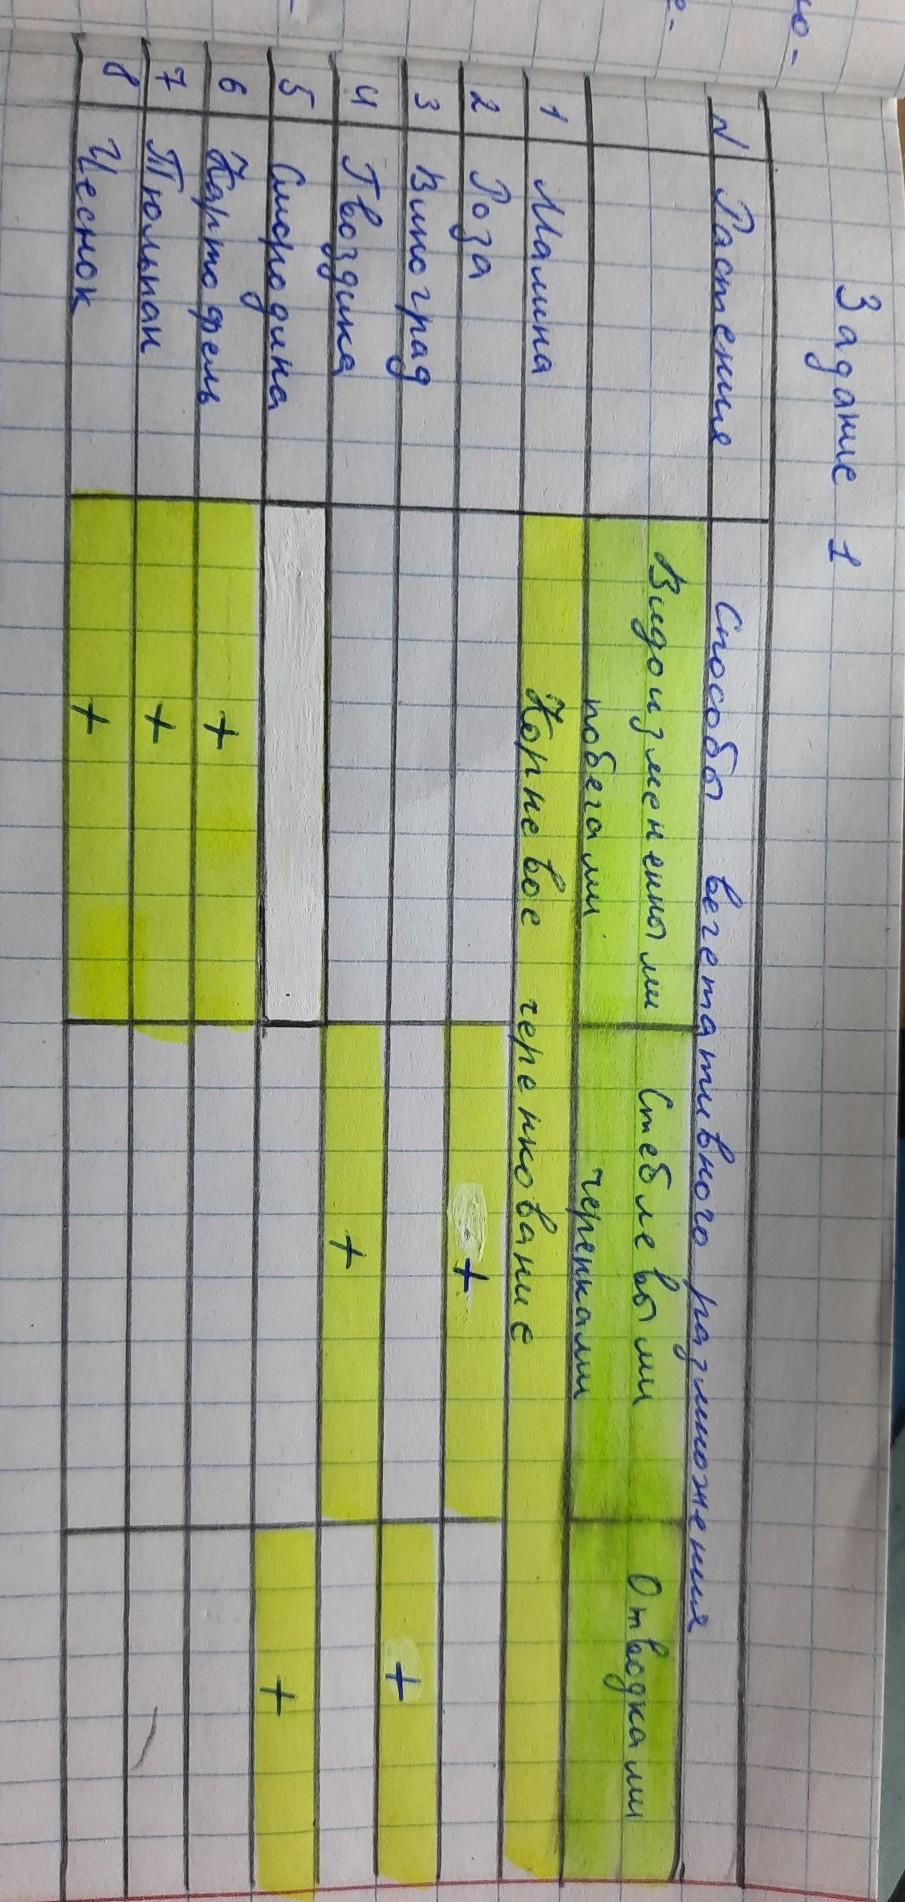 Задание 1
N Растения Способы вегетативного размножения
Видоизмененными побегами Стеблевыми черенками Отводками
1 Малина Корневое черенкование
2 Роза +
3 Виноград +
4 Гвоздика +
5 Смородина +
6 Картофель +
7 Тюльпан +
8 Чеснок +